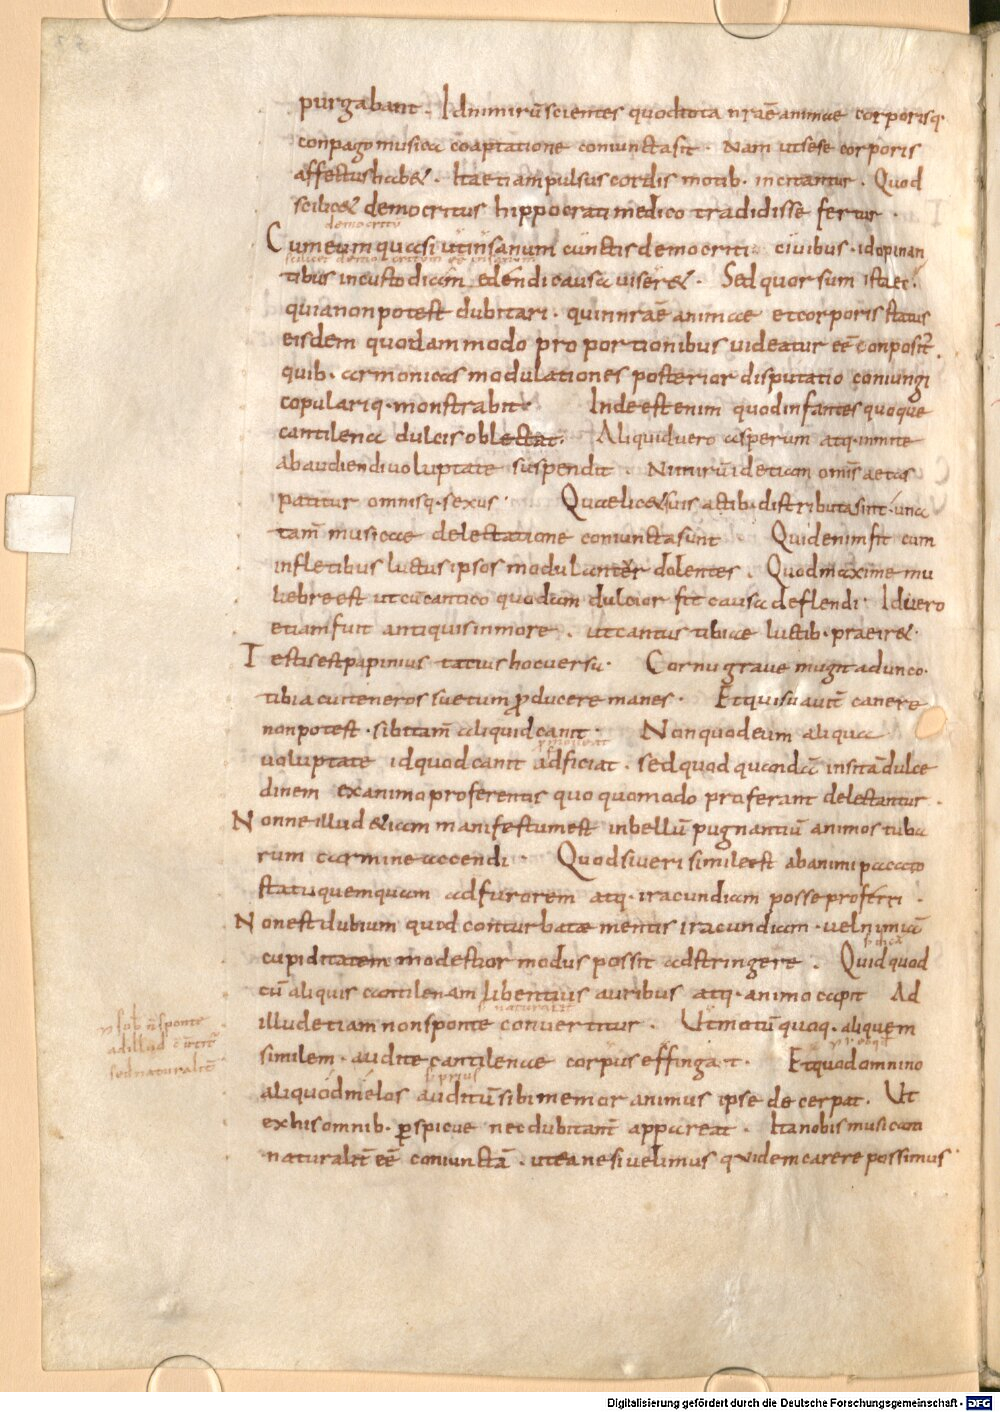 purgabant. Idnimirū scientes quod tota nrae animae corporisq·
conpago musica coaptatione coniuncta sit. Nam ut sese corporis
affectus habet. Ita etiam pulsus cordis motib· incitantur. Quod
scilicet democritus hippocrati medico tradidisse fertur.
democritū
Cum eum quasi ut insanum cunctis democriti civibus · id opinan
scilicet democritum eē insanum
tibus in custodiam edendi causa viseret. Sed quorsum istaec.
quia non potest dubitari. quin nrae animae et corporis status
eisdem quodammodo proportionibus uideatur eē conposit.
quib. armonicas modulationes posterior disputatio coniungi
copulariq· monstrabit. Inde est enim quod infantes quoque
cantilena dulcis oblectat. Aliquid uero asperum atq· inmite
ab audiendi uoluptate suspendit. Nimirū id etiam omīs aetas
patitur omnisq· sexus. Quae licet suis actib· distributa sint · una
tam̄ musicae delectatione coniuncta sunt. Quid enim fit cum
in fletibus luctus ipsos modulanter dolentes. Quod maxime mu
liebre est ut cū cantico quodam dulcior fit causa deflendi. Id uero
etiam fuit antiquis in more. ut cantus tibiae luctib· praeiret.
Testis est papinius tatius hoc uersu. Cornu graue mugit adunco.
tibia cui teneros suetum ꝓducere manes. Et qui suauit̄ canere
non potest · sibi tam̄ aliquid canit. Non quod eum aliqua
uoluptate id quod canit adficiat. sed quod quandā insitā dulce
dinem ex animo proferentis quoquo modo proferant delectantur.
Nonne illud etiam manifestum est in bellū pugnantiū animos tuba
rum carmine accendi. Quod si ueri simile est ab animi pacato
statu quemquam ad furorem atq· iracundiam posse proferri.
Non est dubium quod conturbatae mentis iracundiam · uel nimiā
cupiditatem modestior modus possit adstringere. Quid quod
cū aliquis cantilenam libentius auribus atq· animo capit Ad
naturalit̄
illud etiam non sponte convertitur. Ut motū quoq. aliquem
similem · audite cantilenae corpus effingat. Et quod omnino
prius
aliquod melos auditū sibi memor animus ipse decerpat. Ut
ex his omnib. ꝑspicue nec dubitant̄ appareat. Ita nobis musicam
naturalit̄ eē coniunctā. ut ea ne si uelimus quidem carere possimus
sponte
ad illud
sed naturalit̄
Digitalisierung gefördert durch die Deutsche Forschungsgemeinschaft - DFG